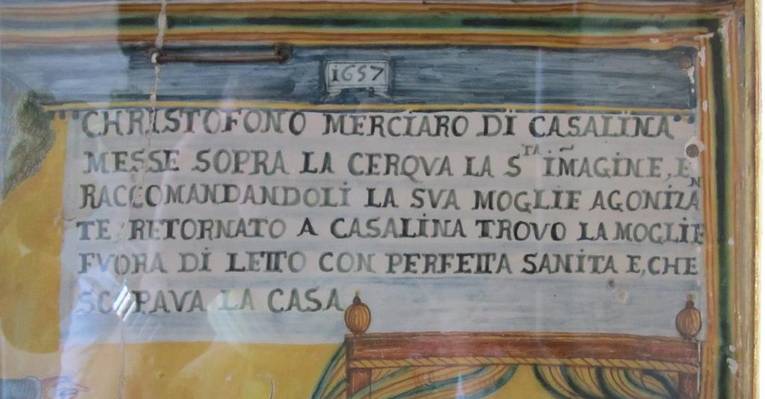 1657
CHRISTOFONO MERCIARO DI CASALINA
MESSE SOPRA LA CERQVA LA S.TA IM̃AGINE, E
RACCOMANDANDOLI LA SVA MOGLIE AGONIZAN
TE RETORNATO A CASALINA TROVO LA MOGLIE
FVORA DI LETTO CON PERFETTA SANITA E, CHE
SCOPAVA LA CASA